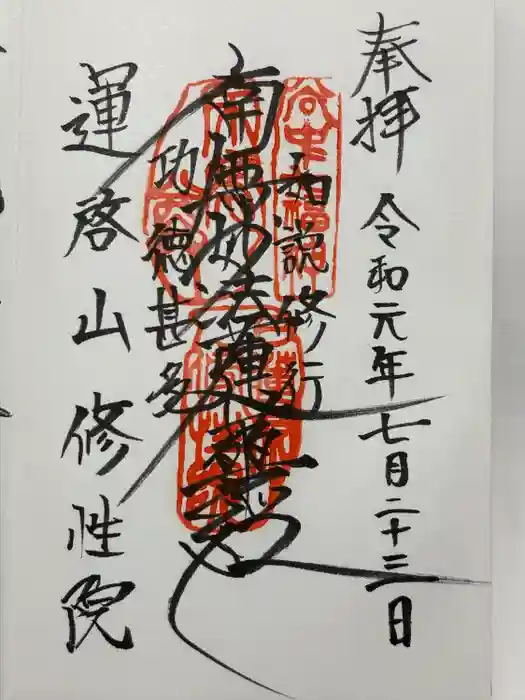 奉拝 令和元年七月二十三日
如説修行
南無妙法蓮華経
功徳甚多
運啓山修性院